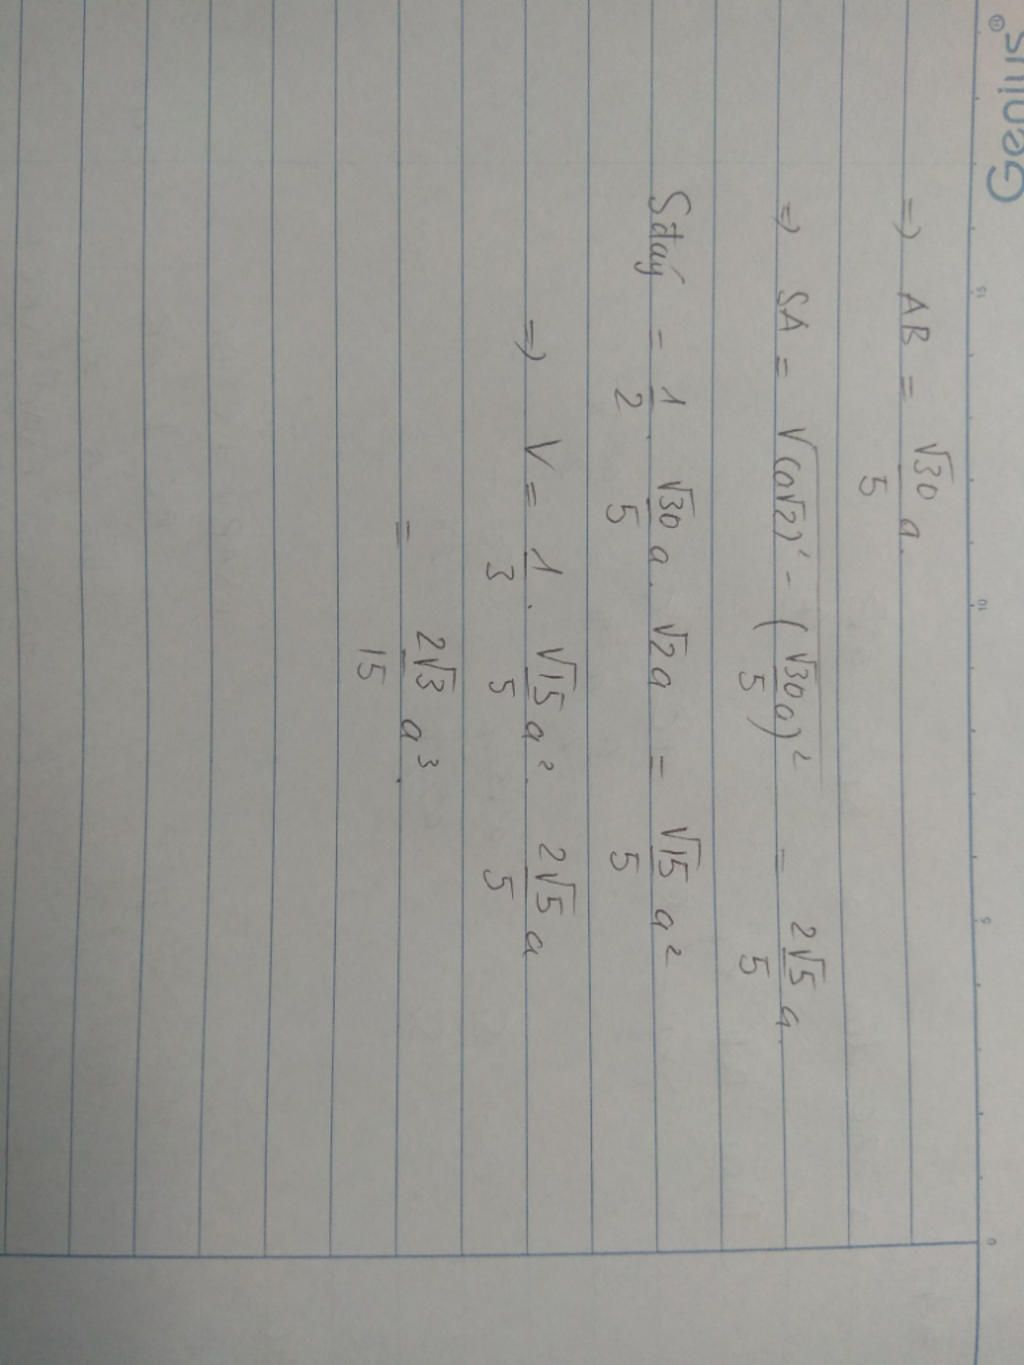 Genius®
15 10 5 0
=) AB = √30/5 a.
=) SA = √(a√2)² - (√30/5 a)² = 2√5/5 a.
Sđáy = 1/2 . √30/5 a . √2a = √15/5 a²
=) V = 1/3 . √15/5 a² . 2√5/5 a
= 2√3/15 a³.